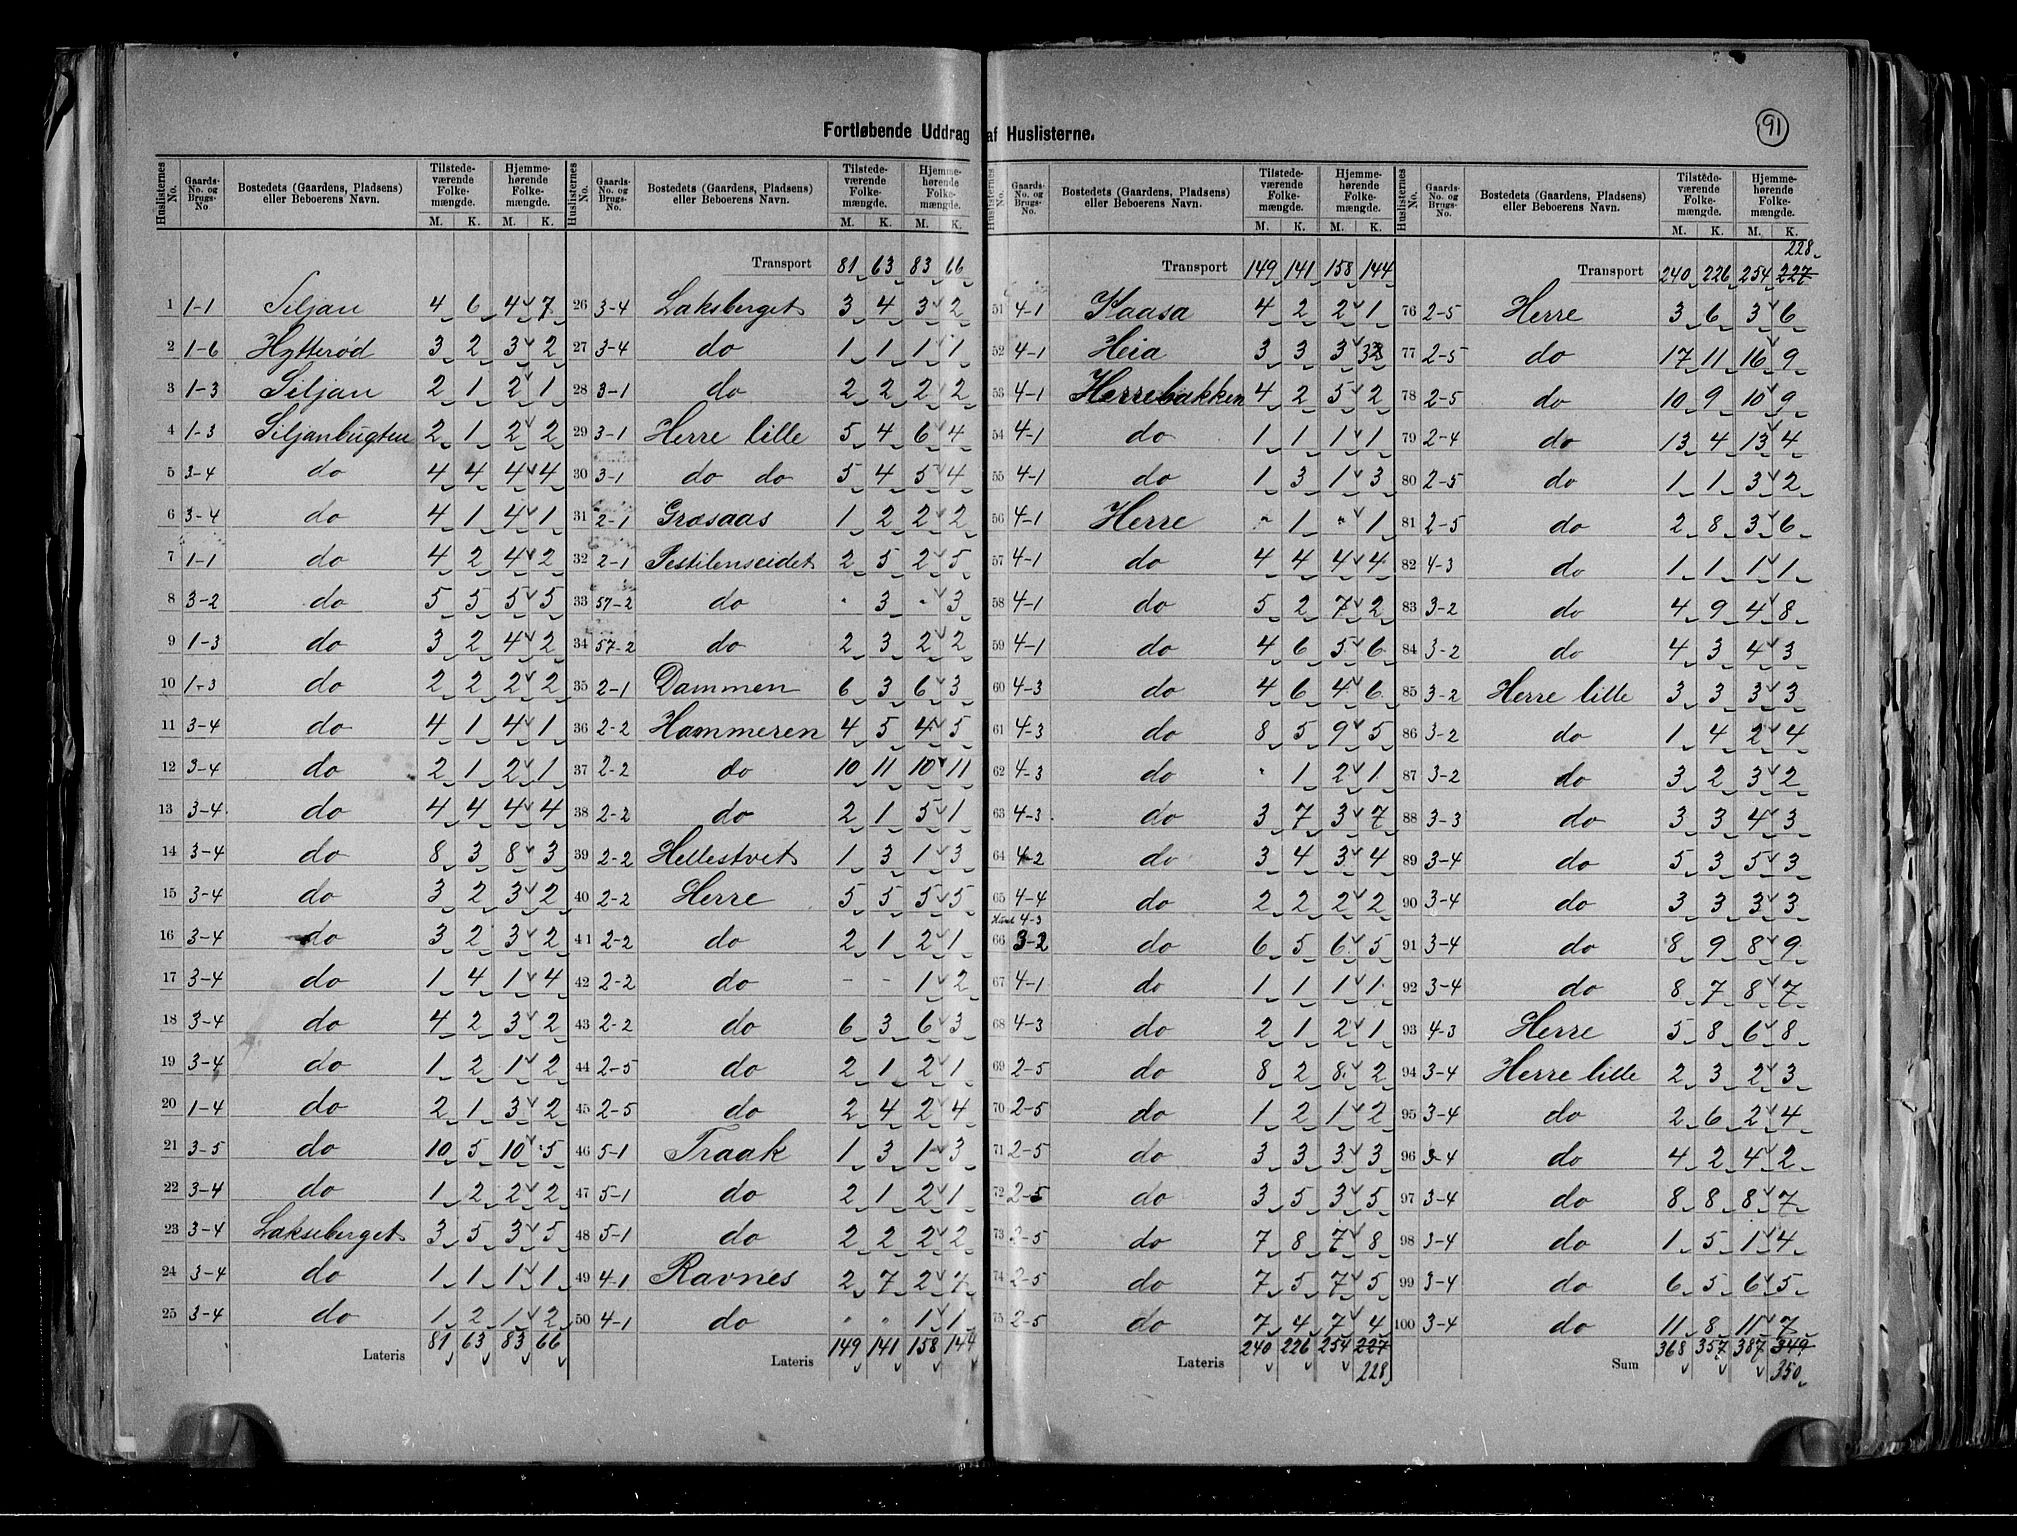 Fortløbende Uddrag af Huslisterne.
91
Huslisternes No. | Gaards-No. og Brugs-No. | Bostedets (Gaardens, Pladsens) eller Beboerens Navn. | Tilstedeværende Folkemængde. M. K. | Hjemmehørende Folkemængde. M. K.
1 1-1 Siljan 4 6 4 7
2 1-6 Hytterød 3 2 3 2
3 1-3 Siljan 2 1 2 1
4 1-3 Siljanbugten 2 1 2 2
5 3-4 do 4 4 4 4
6 3-4 do 4 1 4 1
7 1-1 do 4 2 4 2
8 3-2 do 5 5 5 5
9 1-3 do 3 2 4 2
10 1-3 do 2 2 2 2
11 3-4 do 4 1 4 1
12 3-4 do 2 1 2 1
13 3-4 do 4 4 4 4
14 3-4 do 8 3 8 3
15 3-4 do 3 2 3 2
16 3-4 do 3 2 3 2
17 3-4 do 1 4 1 4
18 3-4 do 4 2 3 2
19 3-4 do 1 2 1 2
20 1-4 do 2 1 3 2
21 3-5 do 10 5 10 5
22 3-4 do 1 2 2 2
23 3-4 Lakseberget 3 5 3 5
24 3-4 do 1 1 1 1
25 3-4 do 1 2 1 2
Lateris 81 63 83 66
Huslisternes No. | Gaards-No. og Brugs-No. | Bostedets (Gaardens, Pladsens) eller Beboerens Navn. | Tilstedeværende Folkemængde. M. K. | Hjemmehørende Folkemængde. M. K.
Transport 81 63 83 66
26 3-4 Laksberget 3 4 3 2
27 3-4 do 1 1 1 1
28 3-1 do 2 2 2 2
29 3-1 Herre lille 5 4 6 4
30 3-1 do do 5 4 5 4
31 2-1 Grosaas 1 2 2 2
32 2-1 Pestilenseidet 2 5 2 5
33 57-2 do " 3 " 3
34 57-2 do 2 3 2 2
35 2-1 Dammen 6 3 6 3
36 2-2 Hammeren 4 5 4 5
37 2-2 do 10 11 10 11
38 2-2 do 2 1 5 1
39 2-2 Hellestvet 1 3 1 3
40 2-2 Herre 5 5 5 5
41 2-2 do 2 1 2 1
42 2-2 do - - 1 2
43 2-2 do 6 3 6 3
44 2-5 do 2 1 2 1
45 2-5 do 2 4 2 4
46 5-1 Traak 1 3 1 3
47 5-1 do 2 1 2 1
48 5-1 do 2 2 2 2
49 4-1 Ravnes 2 7 2 7
50 4-1 do " " 1 1
Lateris 149 141 158 144
Huslisternes No. | Gaards-No. og Brugs-No. | Bostedets (Gaardens, Pladsens) eller Beboerens Navn. | Tilstedeværende Folkemængde. M. K. | Hjemmehørende Folkemængde. M. K.
Transport 149 141 158 144
51 4-1 Kaasa 4 2 2 1
52 4-1 Heia 3 3 3 3
53 4-1 Herrebakken 4 2 5 2
54 4-1 do 1 1 1 1
55 4-1 do 1 3 1 3
56 4-1 Herre " 1 " 1
57 4-1 do 4 4 4 4
58 4-1 do 5 2 7 2
59 4-1 do 4 6 5 6
60 4-3 do 4 6 4 6
61 4-3 do 8 5 9 5
62 4-3 do " 1 2 1
63 4-3 do 3 7 3 7
64 4-2 do 3 4 3 4
65 4-4 do 2 2 2 2
4-3
66 3-2 do 6 5 6 5
67 4-1 do 1 1 1 1
68 4-3 do 2 1 2 1
69 2-5 do 8 2 8 2
70 2-5 do 1 2 1 2
71 2-5 do 3 3 3 3
72 2-5 do 3 5 3 5
73 2-5 do 7 8 7 8
74 2-5 do 7 5 7 5
75 2-5 do 7 4 7 4
Lateris 240 226 254 227
228
Huslisternes No. | Gaards-No. og Brugs-No. | Bostedets (Gaardens, Pladsens) eller Beboerens Navn. | Tilstedeværende Folkemængde. M. K. | Hjemmehørende Folkemængde. M. K.
228
Transport 240 226 254 227
76 2-5 Herre 3 6 3 6
77 2-5 do 17 11 16 9
78 2-5 do 10 9 10 9
79 2-4 do 13 4 13 4
80 2-5 do 1 1 3 2
81 2-5 do 2 8 3 6
82 4-3 do 1 1 1 1
83 3-2 do 4 9 4 8
84 3-2 do 4 3 4 3
85 3-2 Herre lille 3 3 3 3
86 3-2 do 1 4 2 4
87 3-2 do 3 2 3 2
88 3-3 do 3 3 4 3
89 3-4 do 5 3 5 3
90 3-4 do 3 3 3 3
91 3-4 do 8 9 8 9
92 3-4 do 8 7 8 7
93 4-3 Herre 5 8 6 8
94 3-4 Herre lille 2 3 2 3
95 3-4 do 2 6 2 4
96 3-4 do 4 2 4 2
97 3-4 do 8 8 8 7
98 3-4 do 1 5 1 4
99 3-4 do 6 5 6 5
100 3-4 do 11 8 11 7
Sum 368 357 387 349
350